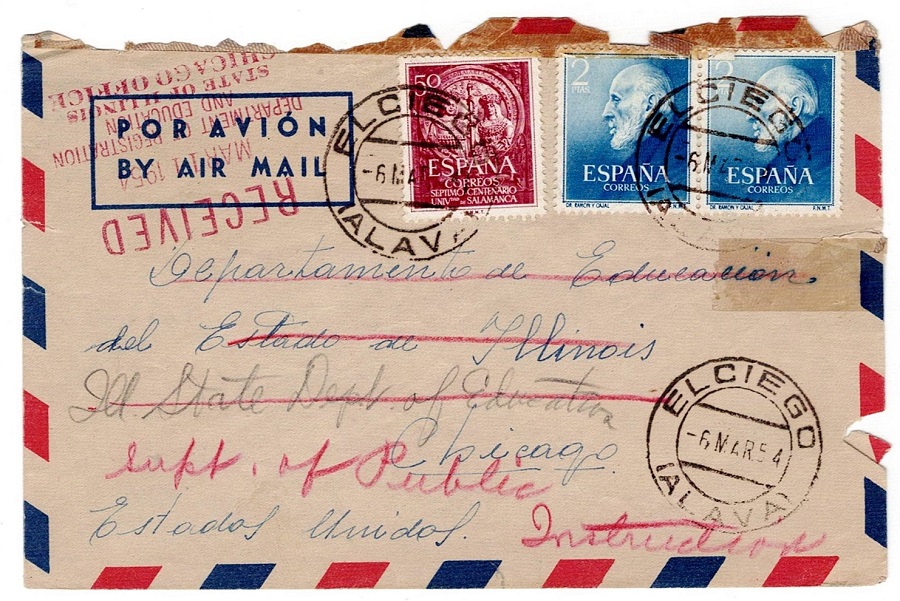 STATE OF ILLINOIS
CHICAGO OFFICE
DEPARTMENT OF REGISTRATION
AND EDUCATION
MAR 11 1954
RECEIVED
POR AVIÓN
BY AIR MAIL
50
ESPAÑA
CORREOS
SEPTIMO CENTENARIO
UNIV DE SALAMANCA
2
PTAS.
ESPAÑA
CORREOS
DR. RAMON Y CAJAL
2
ESPAÑA
CORREOS
DR. RAMON Y CAJAL
F.N.M.T.
ELCIEGO
-6 MAR
(ALAVA)
ELCIEGO
-6 M
Departamento de Educación,
del Estado de Illinois
Ill State Dept. of Education
Chicago.
Supt. of Public
Estados Unidos.
Instruction
ELCIEGO
-6 MAR 54
(ALAVA)